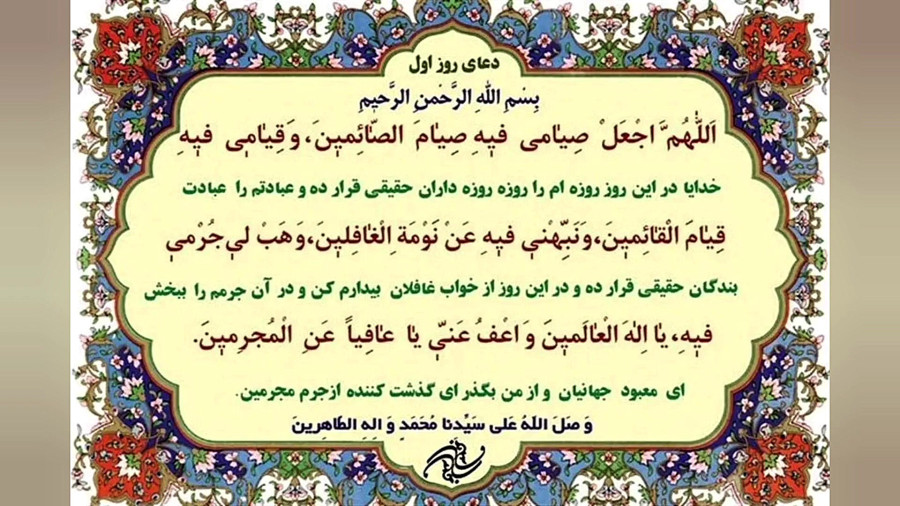 دعای روز اول
بِسْمِ اللهِ الرَّحْمنِ الرَّحیمِ
اَللّٰهُمَّ اجْعَلْ صِیٰامی فیٖهِ صِیٰامَ الصّٰائِمیٖنَ، وَ قِیٰامیٖ فیٖهِ
خدایا در این روز روزه ام را روزه روزه داران حقیقی قرار ده و عبادتم را عبادت
قِیٰامَ الْقٰائِمیٖنَ، وَ نَبِّهْنیٖ فیٖهِ عَنْ نَوْمَةِ الْغٰافِلیٖنَ، وَ هَبْ لیٖ جُرْمیٖ
بندگان حقیقی قرار ده و در این روز از خواب غافلان بیدارم کن و در آن جرمم را ببخش
فیٖهِ، یٰا اِلٰهَ الْعٰالَمیٖنَ وَ اعْفُ عَنّیٖ یٰا عٰافِیاً عَنِ الْمُجرِمیٖنَ.
ای معبود جهانیان و از من بگذر ای گذشت کننده ازجرم مجرمین.
وَ صَلَ اللّهُ عَلی سَیِّدنا مُحَمَدٍ وَ الِهِ الطّاهِرینَ